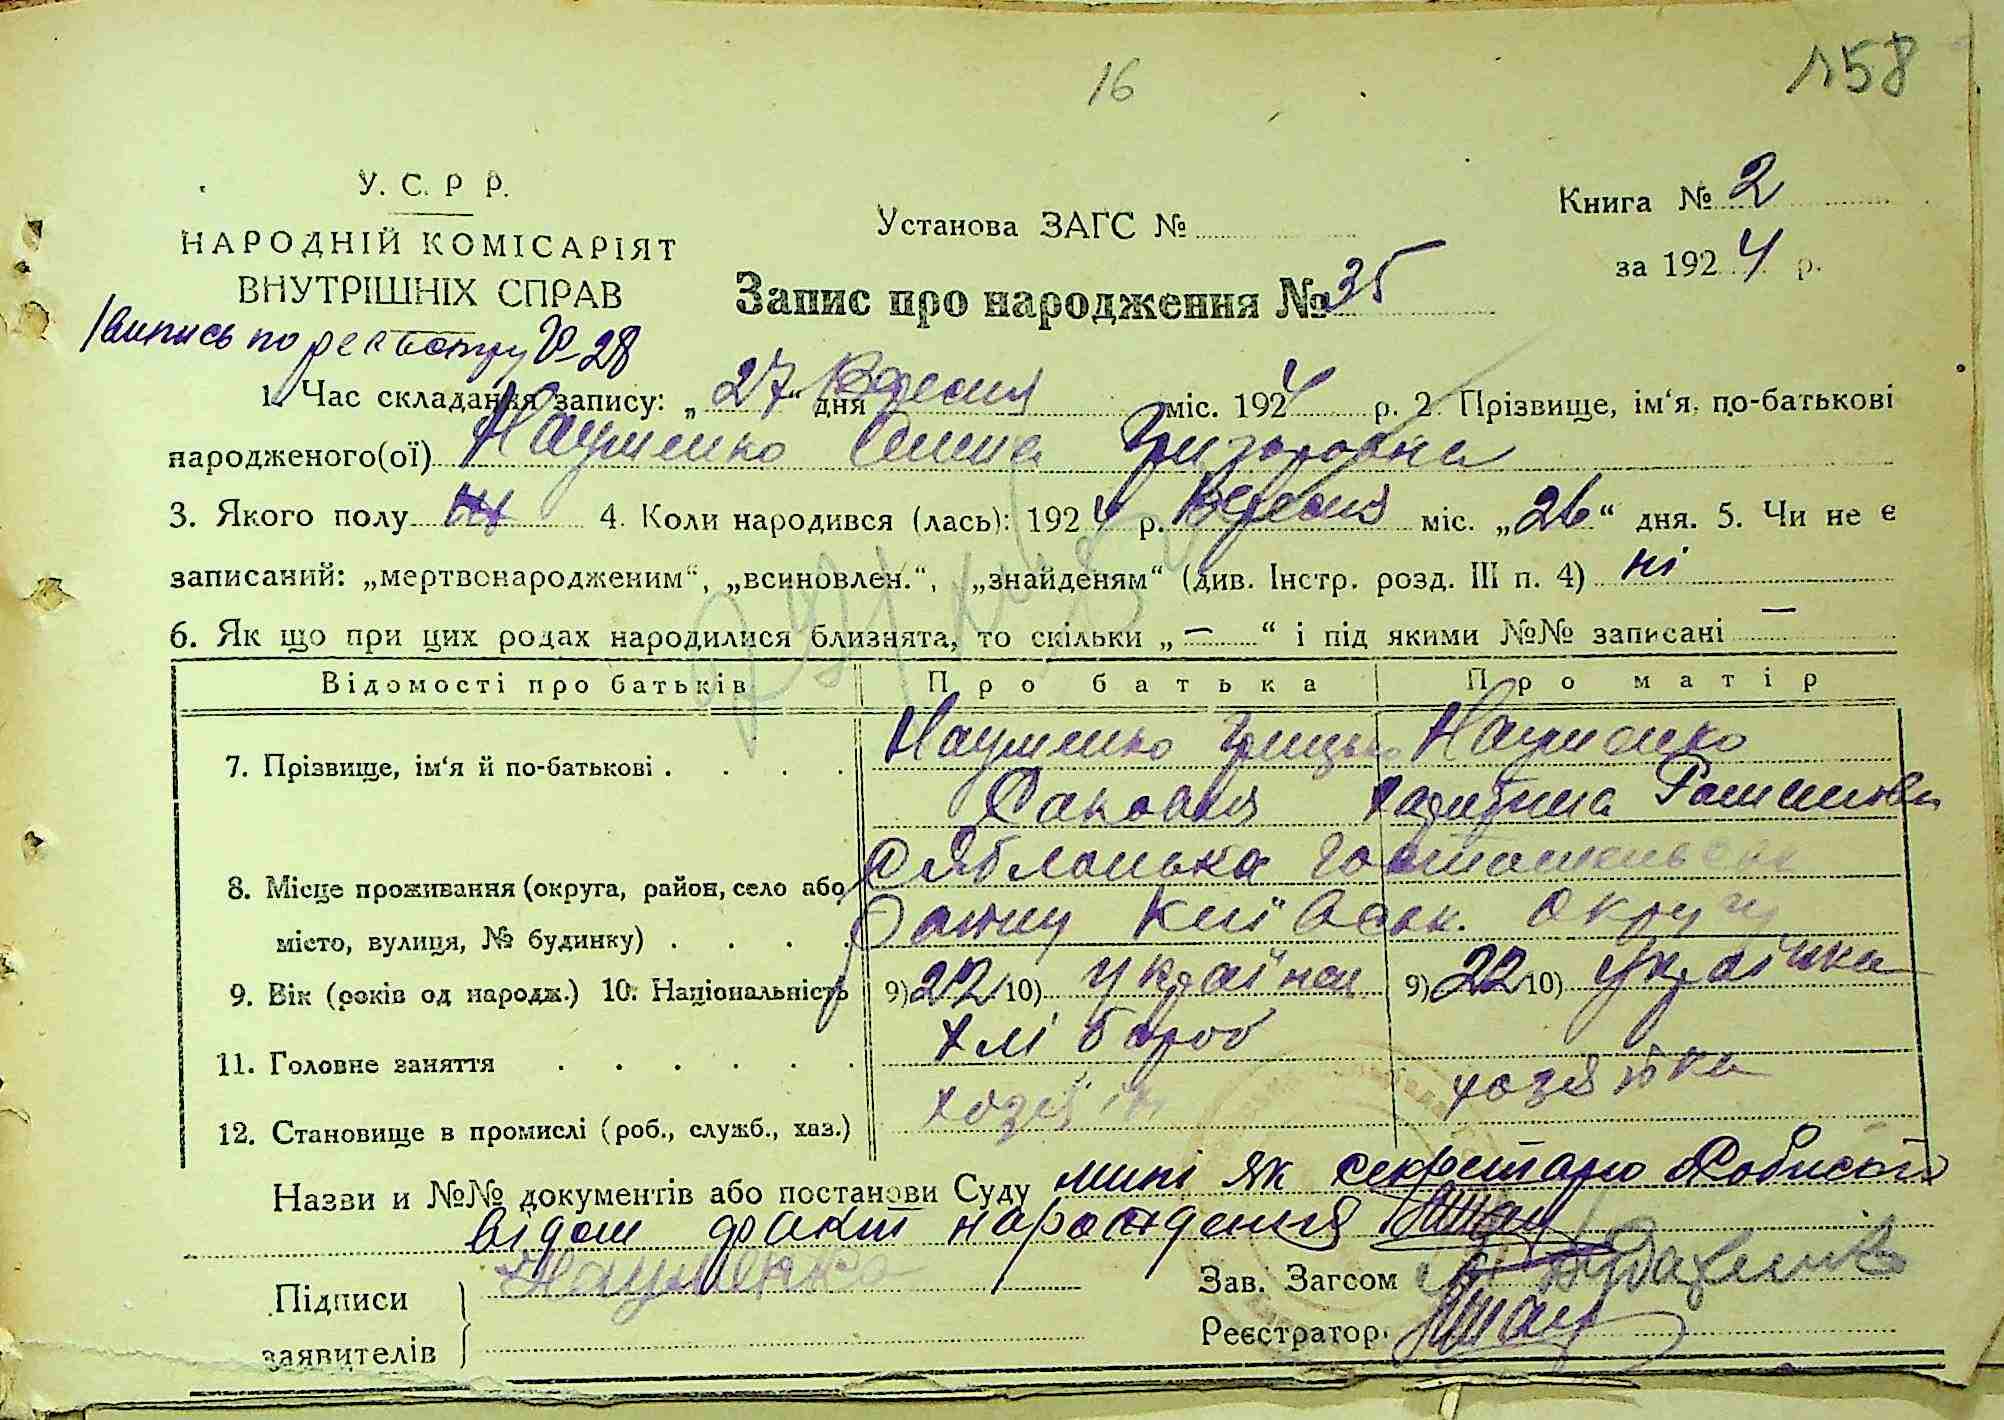 16
158
У. С. Р Р.
НАРОДНІЙ КОМІСАРІЯТ
ВНУТРІШНІХ СПРАВ
Установа ЗАГС №
Книга № 2
за 1924 р.
Запис про народження № 35
Випись по реєстру № 28
1. Час складання запису: „27“ дня Вересня міс. 1924 р. 2. Прізвище, ім‘я, по-батькові
народженого(ої) Науменко Ганна Григоровна
3. Якого полу ж 4. Коли народився (лась): 1924 р. Вересня міс. „26“ дня. 5. Чи не є
записаний: „мертвонародженим“, „всиновлен.“, „знайденям“ (див. Інстр. розд. III п. 4) ні
6. Як що при цих родах народилися близнята, то скільки „—“ і під якими №№ записані —
Відомості про батьків Про батька Про матір
7. Прізвище, ім‘я й по-батькові . . . . Науменко Грицько Науменко
8. Місце проживання (округа, район, село або Яблонька Гостомельськ
місто, вулиця, № будинку) . . . . Київськ. Округу
9. Вік (років од народж.) 10. Національність 9) 22 10) Українец 9) 22 10) Українка
11. Головне заняття . . . . . . хлібороб
12. Становище в промислі (роб., служб., хаз.) хозяїн хозяйка
Назви и №№ документів або постанови Суду мині як секретарю Особисто
відом факт народження
Підписи Науменко
заявителів
Зав. Загсом
Реєстратор